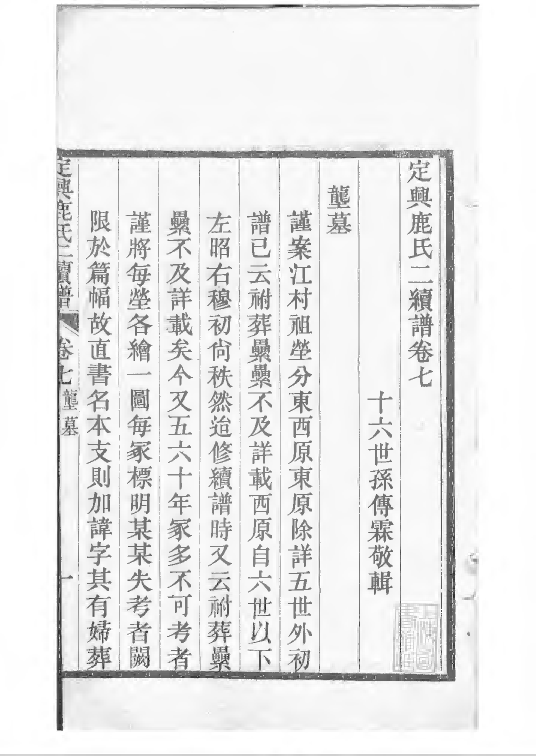 定興鹿氏二續譜卷七
十六世孫傳霖敬輯
壟墓
謹案江村祖塋分東西原東原除詳五世外初
譜已云祔葬纍纍不及詳載西原自六世以下
左昭右穆初尙秩然迨修續譜時又云祔葬纍
纍不及詳載矣今又五六十年冢多不可考者
謹將每塋各繪一圖每冢標明某某失考者闕
限於篇幅故直書名本支則加諱字其有婦葬
定興鹿氏二續譜 卷七 壟墓 一